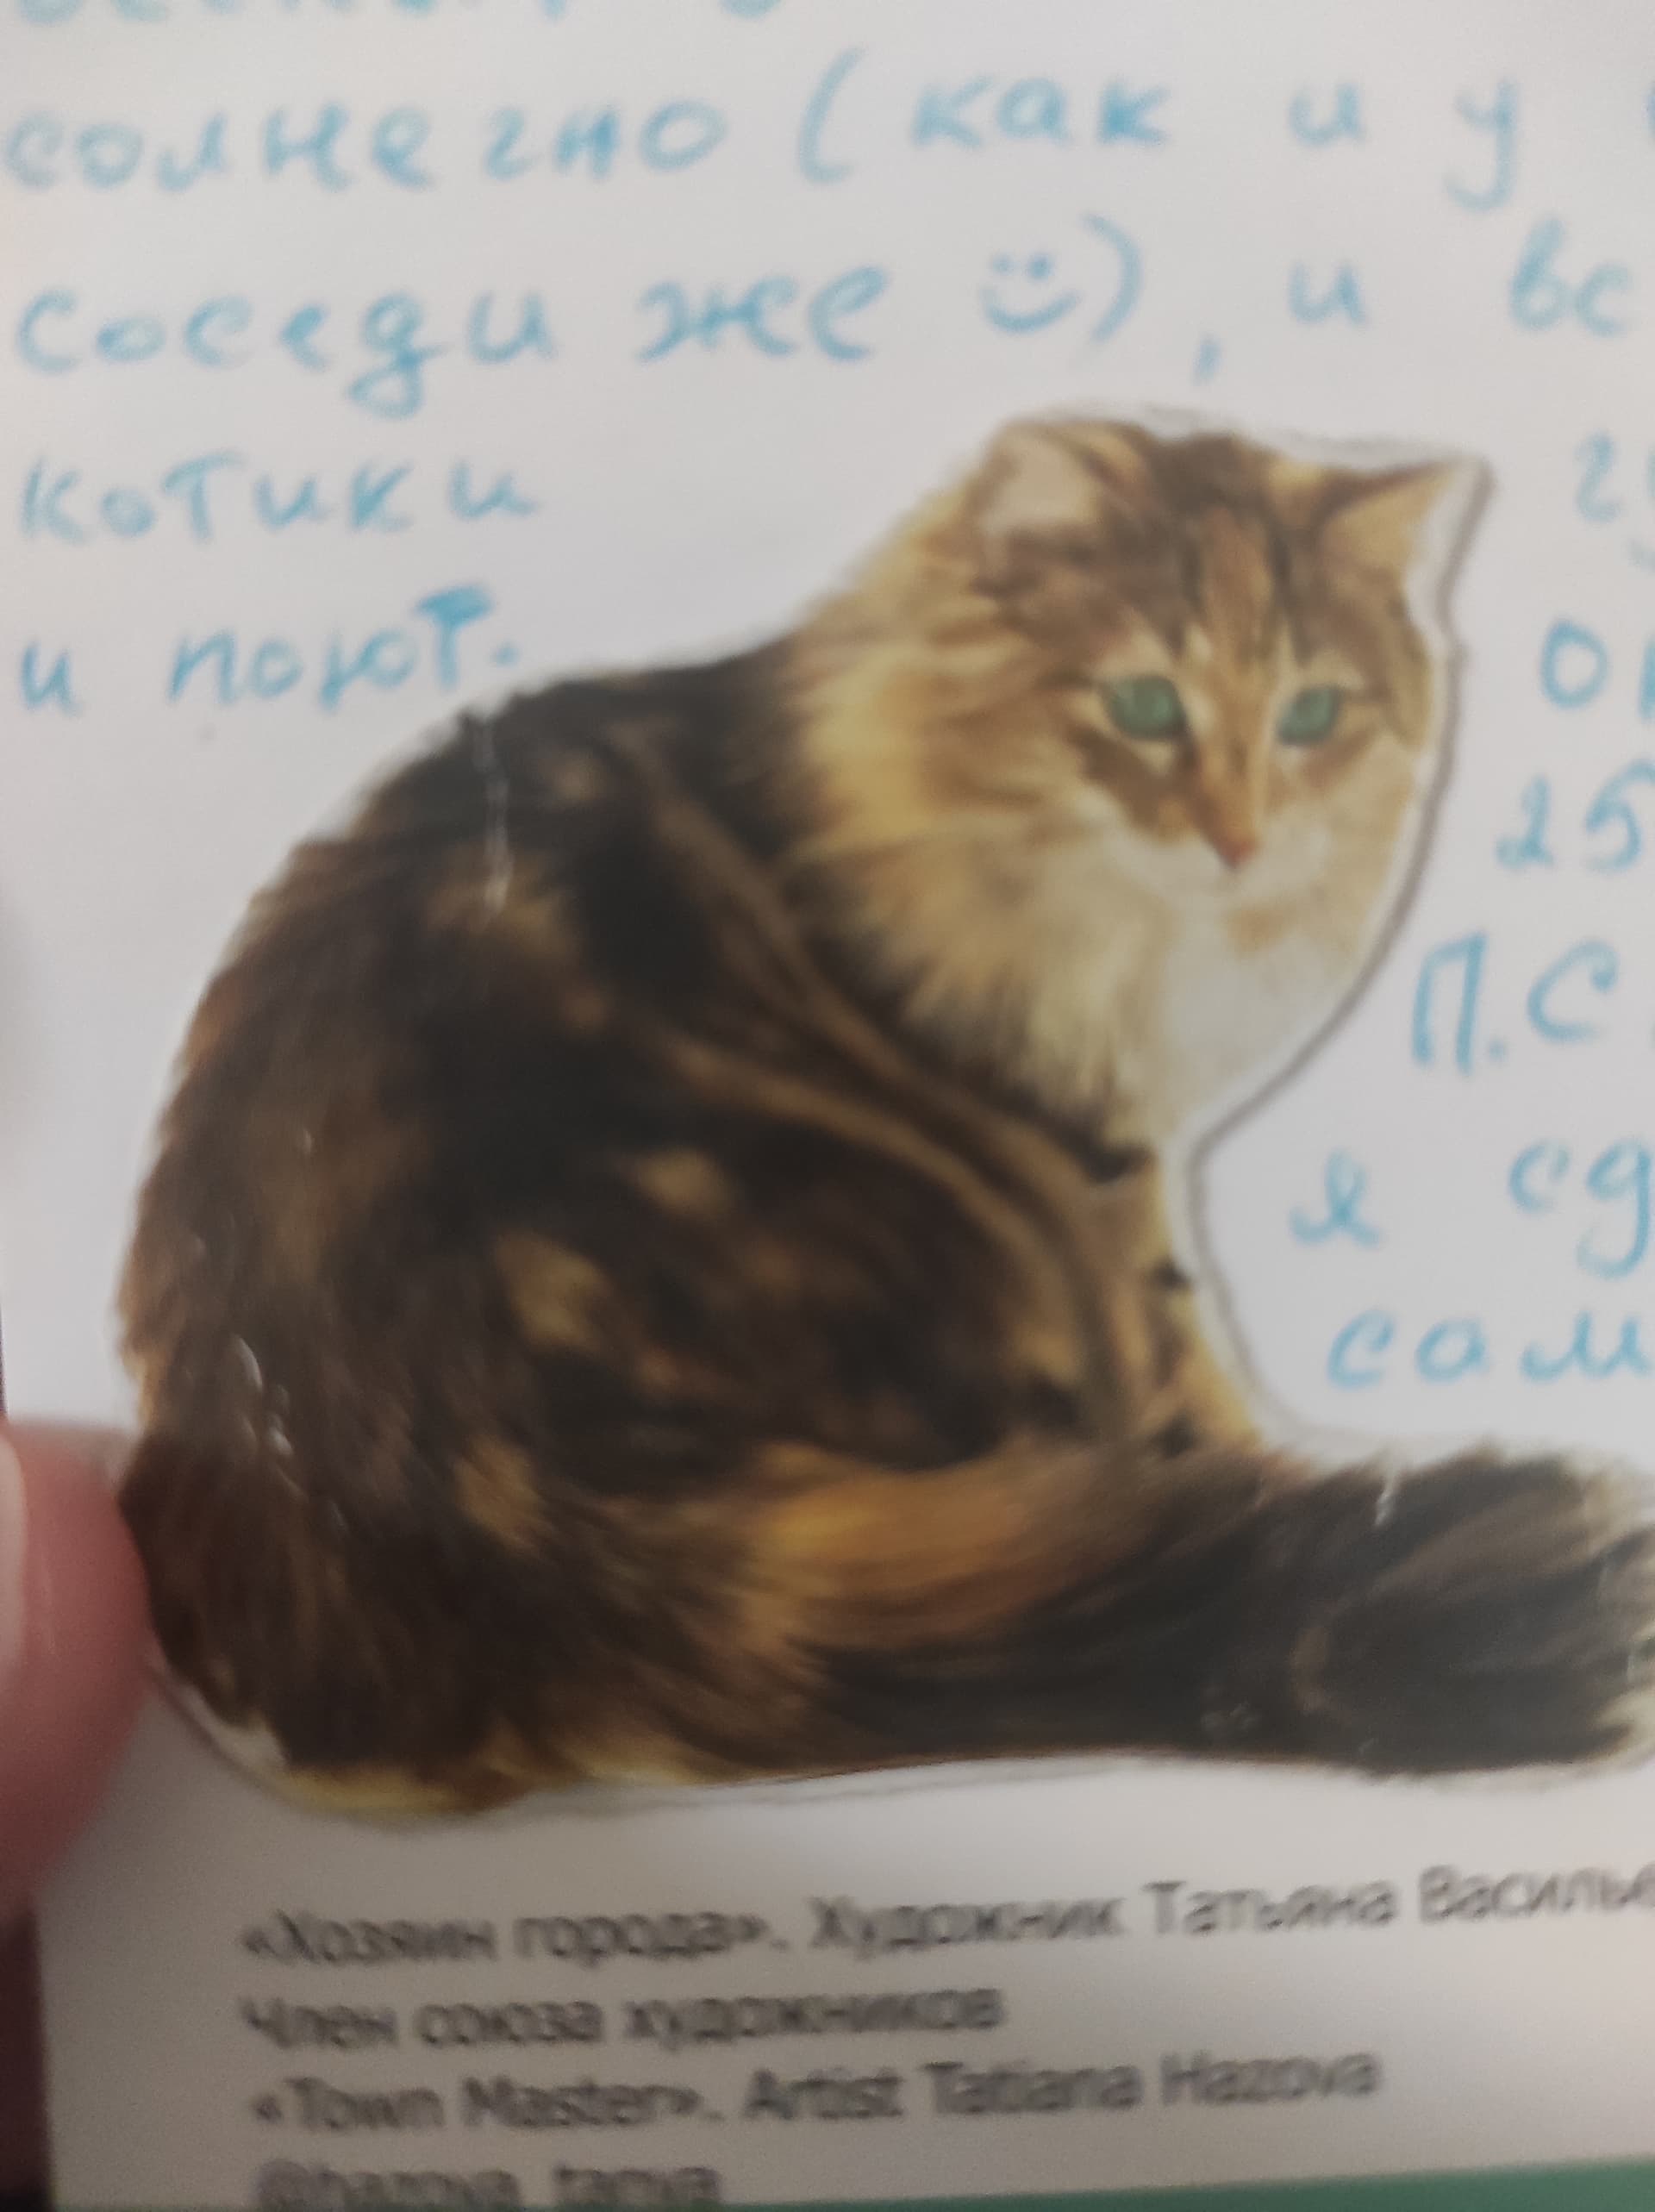 солнечно (как и у
соседи же :)), и вс
котики
и поют.
25
П.С.
я сд
сам
«Хозяин города». Художник Татьяна Василье
Член союза художников
«Town Master». Artist Tatiana Hazova
@hazova_tanya